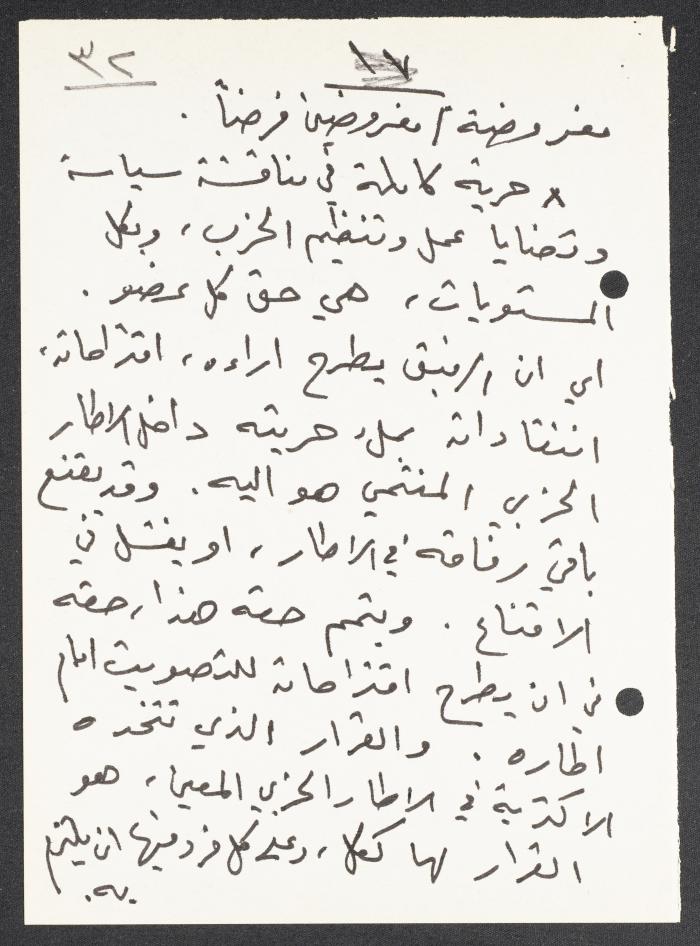 ٣٢
١٧
مفروضة / مفروضين فرضاً .
× حرية كاملة في مناقشة سياسة
وقضايا عمل وتنظيم الحزب ، وبكل
المستويات ، هي حق كل عضو .
اي ان الرفيق يطرح اراءه ، اقتراحاته ،
انتقاداته بملء حريته داخل الاطار
الحزبي المنتمي هو اليه . وقد يقنع
باقي رفاقه في الاطار ، او يفشل في
الاقناع . ويتمم حقه هذا ، حقه
في ان يطرح اقتراحاته للتصويت امام
اطاره . والقرار الذي تتخده
الاكثرية في الاطار الحزبي المعين ، هو
القرار لها ككل ، وعلى كل فرد فيها ان يلتزم
به .